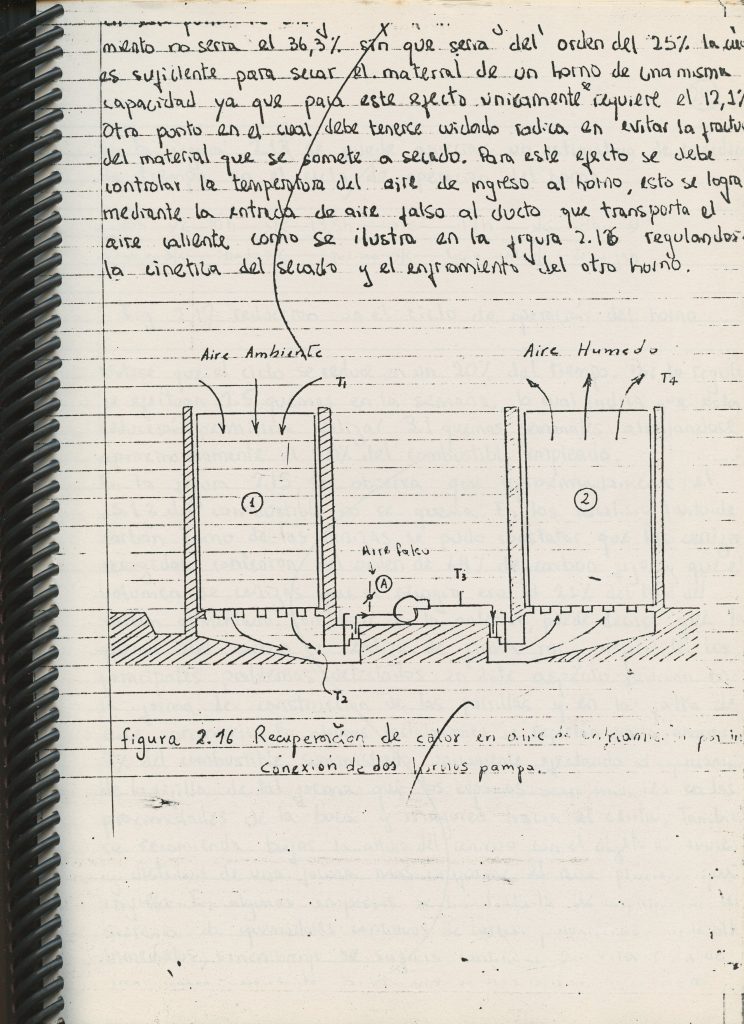 miento no serra el 36,3% sin que serra del orden del 25% la
es sufiiente para secar el material de un horno de una misma
capacidad ya que para este efecto unicamente requiere el 12,1%
Otro punto en el cual debe tenerce cuidado radica en evitar la fractu
del material que se somete a secado. Para este efecto se debe
controlar la temperatura del aire de ingreso al horno, esto se logra
mediante la entrada de aire falso al ducto que transporta el
aire caliente como se ilustra en la figura 2.16 regulandos
la cinetica del secado y el enfriamiento del otro horno.
Aire Ambiente
T1
Aire Humedo
T4
1
2
Aire falso
A
T3
T2
figura 2.16 Recuperación de calor en aire de enfriamien por in
conexion de dos hornos pampa.